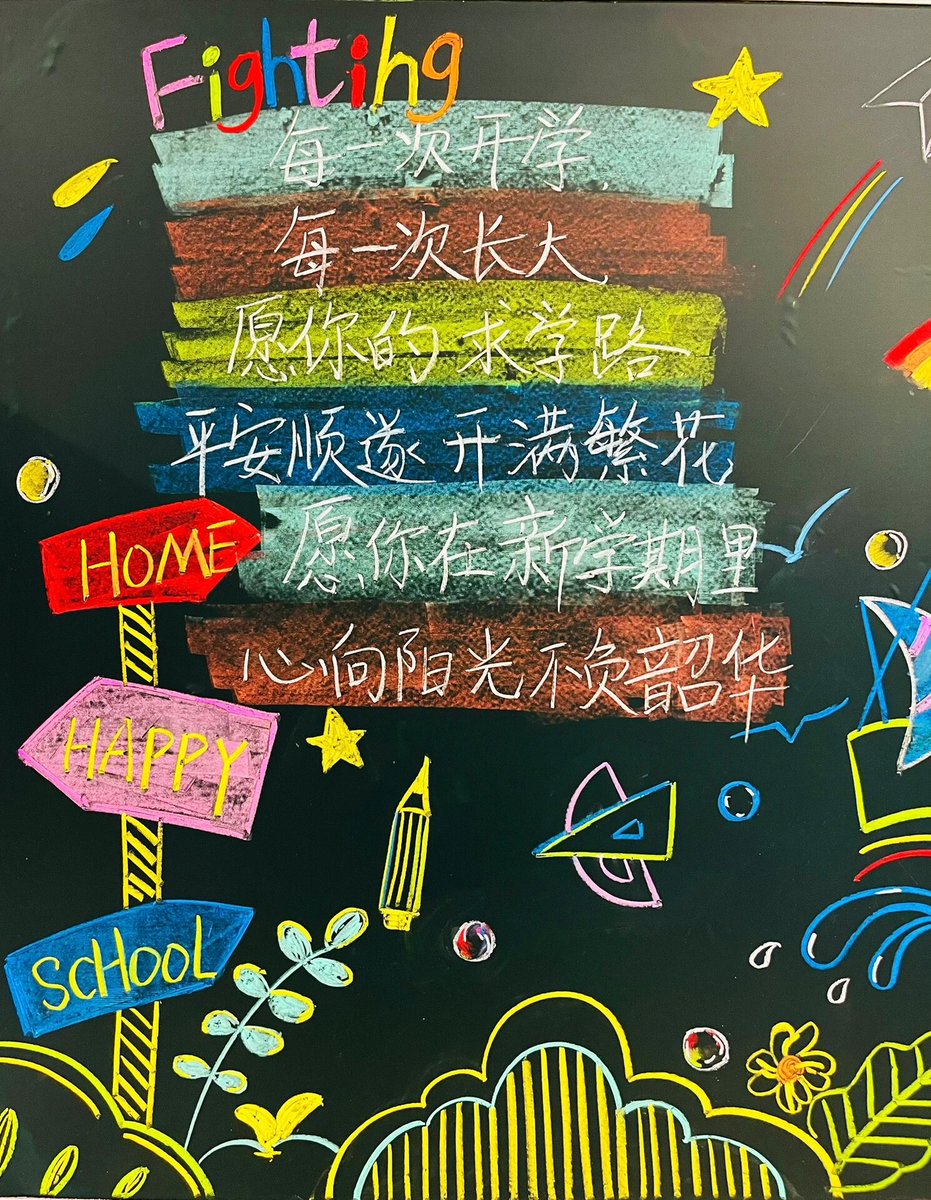 Fighting
每一次开学
每一次长大
愿你的求学路
平安顺遂开满繁花
愿你在新学期里
心向阳光不负韶华
HOME
HAPPY
SCHOOL